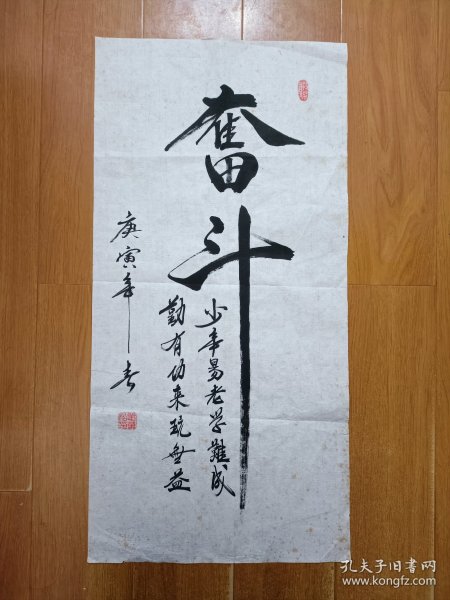 奮斗
少年易老学難成
勤有功来玩無益
庚寅年春
孔夫子旧书网
www.kongfz.com